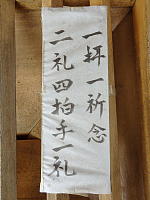 一拝一祈念
二礼四拍手一礼